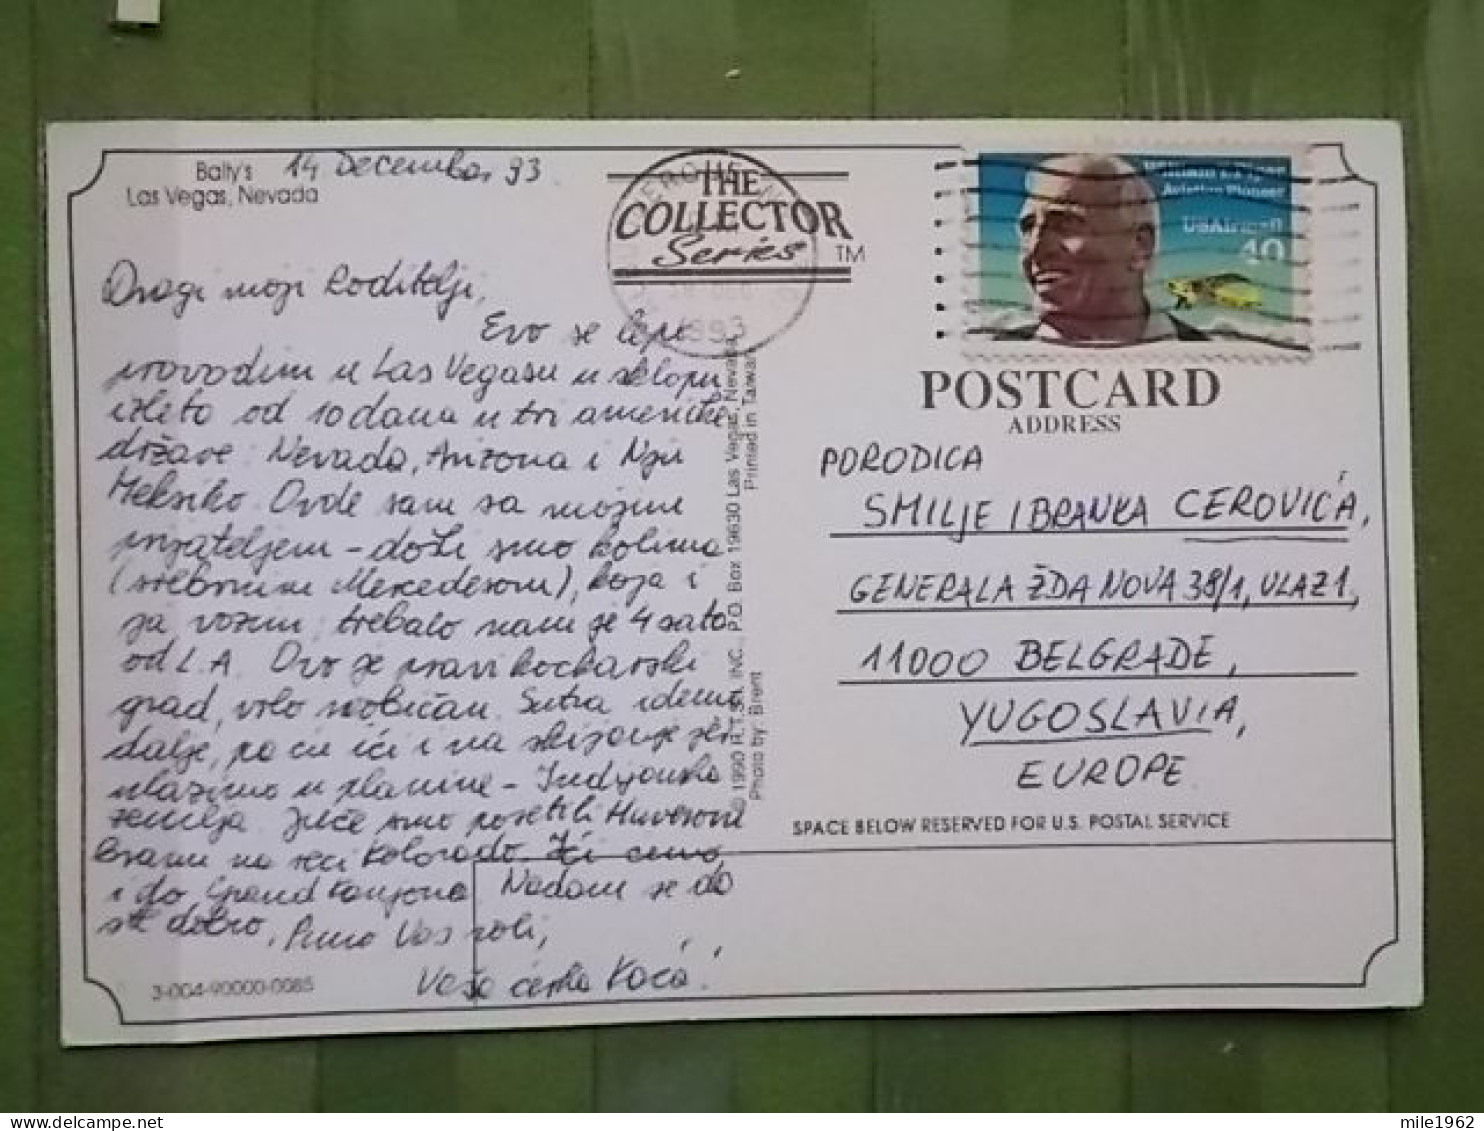 Bally's
Las Vegas, Nevada
14 Decembar, 93.
THE
COLLECTOR
Series
TM
1993
William T. Piper
Aviation Pioneer
USAirmail
40
Dragi moji Roditelji,
Evo se lepo
provodim u Las Vegasu u sklopu
izleta od 10 dana u tri američke
države: Nevada, Arizona i Nju
Meksiko. Ovde sam sa mojim
prijateljem – došli smo kolima
(srebrnim Mercedesom), koja i
ja vozim; trebalo nam je 4 sata
od L.A. Ovo je pravi kockarski
grad, vrlo neobičan. Sutra idemo
dalje, pa ću ići i na skijanje jer
ulazimo u planine – Indijanska
zemlja. Juče smo posetili Huverovu
branu na reci Kolorado. Ići ćemo
i do Grand Kanjona. Nadam se da
ste dobro. Puno Vas voli,
Vaša ćerka Kaća!
3-004-90000-0085
© 1990 R.T.S. INC., P.O. Box 19630 Las Vegas, Nevada
Photo by: Brent
Printed in Taiwan
POSTCARD
ADDRESS
PORODICA
SMILJE I BRANKA CEROVIĆA,
GENERALA ŽDANOVA 38/1, ULAZ 1,
11000 BELGRADE,
YUGOSLAVIA,
EUROPE
SPACE BELOW RESERVED FOR U.S. POSTAL SERVICE
mile1962